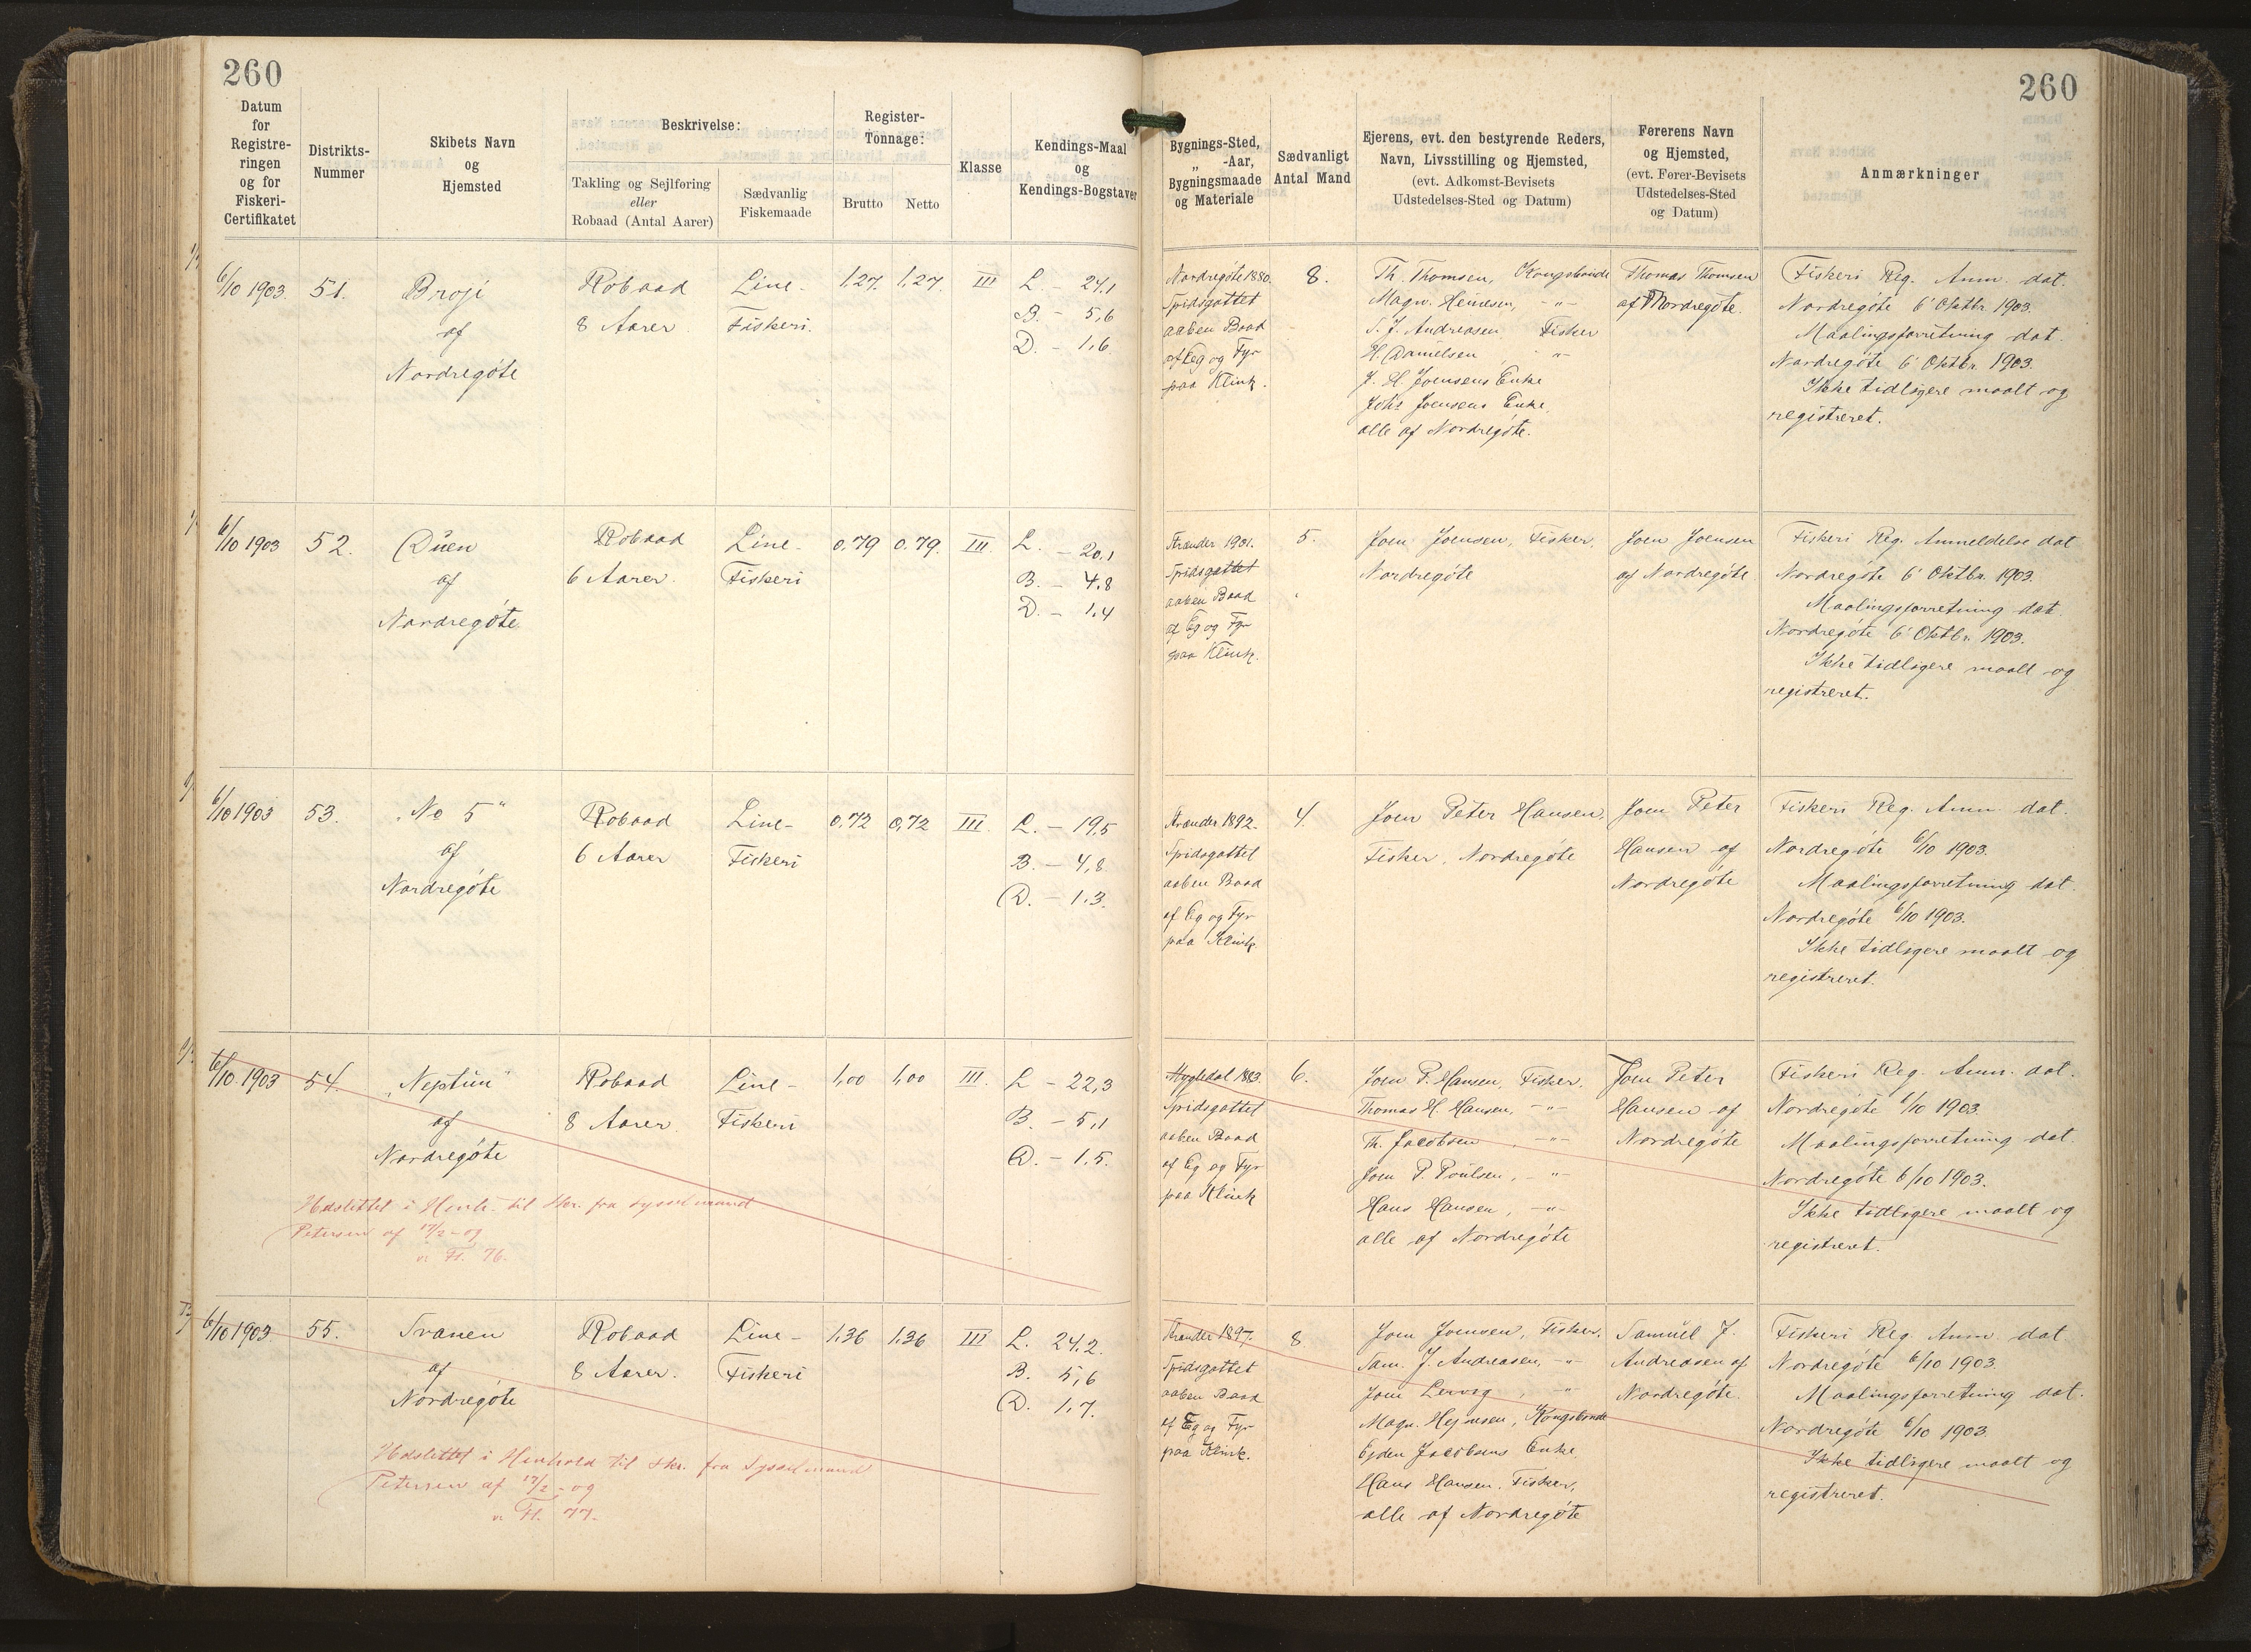 260
260
Datum
for
Registre-
ringen
og for
Fiskeri-
Certifikatet
Distrikts-
Nummer
Skibets Navn
og
Hjemsted
Beskrivelse:
Takling og Sejlføring
eller
Robaad (Antal Aarer)
Sædvanlig
Fiskemaade
Register-
Tonnage:
Brutto
Netto
Klasse
Kendings-Maal
og
Kendings-Bogstaver
Bygnings-Sted,
„ -Aar,
Bygningsmaade
og Materiale
Sædvanligt
Antal Mand
Ejerens, evt. den bestyrende Reders,
Navn, Livsstilling og Hjemsted,
(evt. Adkomst-Bevisets
Udstedelses-Sted og Datum)
Førerens Navn
og Hjemsted,
(evt. Fører-Bevisets
Udstedelses-Sted
og Datum)
Anmærkninger
6/10 1903.
51.
Broji
af
Nordregøte
Robaad
8 Aarer.
Line-
Fiskeri.
1,27.
1,27.
III
L. - 24,1
B. - 5,6
D. - 1,6
Nordregøte 1880.
Spidsgattet
aaben Baad
af Eg og Fyr
paa Klink.
8.
Th. Thomsen, Kongsbonde
Magn. Heinesen, -"-
S. J. Andreasen, Fisker
H. Danielsen, -"-
J. H. Joensens Enke
Johs Joensens Enke,
alle af Nordregøte.
Thomas Thomsen
af Nordregøte.
Fiskeri Reg. Anm. dat.
Nordregøte 6' Oktbr. 1903.
Maalingsforretning dat.
Nordregøte 6' Oktbr. 1903.
Ikke tidligere maalt og
registreret.
6/10 1903
52.
Duen
af
Nordregøte
Robaad
6 Aarer.
Line-
Fiskeri
0,79
0,79.
III.
L. - 20,1
B. - 4,8
D. - 1,4
Strænder 1901.
Spidsgattet
aaben Baad
af Eg og Fyr
paa Klink.
5.
Joen Joensen, Fisker,
Nordregøte
Joen Joensen
af Nordregøte.
Fiskeri Reg. Anmeldelse dat
Nordregøte 6' Oktbr. 1903.
Maalingsforretning dat.
Nordregøte 6' Oktbr. 1903.
Ikke tidligere maalt og
registreret.
6/10 1903
53.
„No 5"
af
Nordregøte
Robaad
6 Aarer
Line-
Fiskeri
0,72
0,72
III.
L. - 19,5
B. - 4,8
D. - 1,3.
Strænder 1892.
Spidsgattet
aaben Baad
af Eg og Fyr
paa Klink.
4.
Joen Peter Hansen,
Fisker, Nordregøte
Joen Peter
Hansen af
Nordregøte
Fiskeri Reg. Anm. dat.
Nordregøte 6/10 1903.
Maalingsforretning dat.
Nordregøte 6/10 1903.
Ikke tidligere maalt og
registreret.
6/10 1903
54.
„Neptun"
af
Nordregøte
Robaad
8 Aarer.
Line-
Fiskeri
1,00
1,00
III.
L - 22,3
B. - 5,1
D. - 1,5.
Udslettet i Henh. til Skr. fra Sysselmand
Petersen af 17/2 - 09
Fl. 76.
Mygledal 1883.
Spidsgattet
aaben Baad
af Eg og Fyr
paa Klink
6.
Joen P. Hansen, Fisker.
Thomas H. Hansen, -"-
Th. Jacobsen, -"-
Joen P. Poulsen, -"-
Hans Hansen, -"-
alle af Nordregøte
Joen Peter
Hansen af
Nordregøte
Fiskeri Reg. Anm. dat.
Nordregøte 6/10 1903.
Maalingsforretning dat.
Nordregøte 6/10 1903.
Ikke tidligere maalt og
registreret.
6/10 1903
55.
Svanen
af
Nordregøte
Robaad
8 Aarer.
Line-
Fiskeri
1,36
1,36
III
L. 24,2.
B. 5,6
D. 1,7.
Udslettet i Henhold til Skr. fra Sysselmand
Petersen af 17/2 - 09
Fl. 77.
Strænder 1897.
Spidsgattet
aaben Baad
af Eg og Fyr
paa Klink.
8.
Joen Joensen, Fisker.
Sam. J. Andreasen, -"-
Joen Lervig, -"-
Magn. Hejnesen, Kongsbonde
Ejden Jacobsens Enke
Hans Hansen, Fisker,
alle af Nordregøte
Samuel J.
Andreasen af
Nordregøte.
Fiskeri Reg. Anm. dat
Nordregøte 6/10 1903.
Maalingsforretning dat.
Nordregøte 6/10 1903
Ikke tidligere maalt og
registreret.